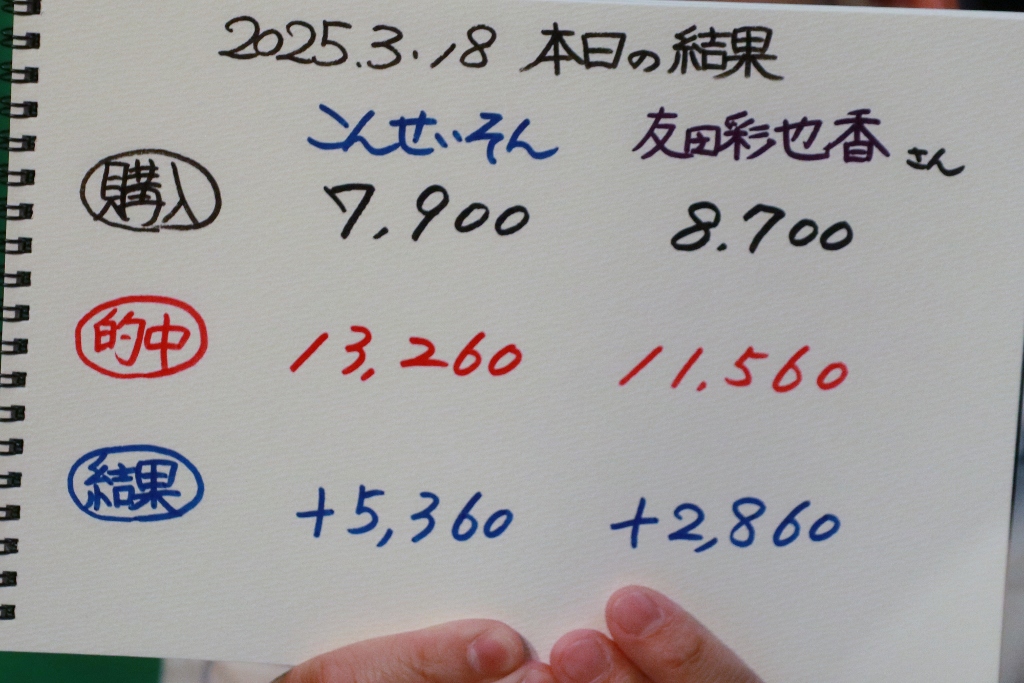 2025.3.18 本日の結果
こんせいそん 友田彩也香 さん
購入 7,900 8.700
的中 13,260 11.560
結果 +5,360 +2,860